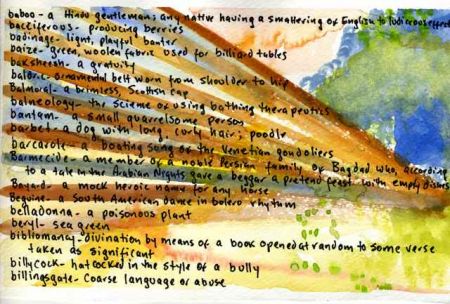 baboo- a Hindu gentleman: any native having a smattering of English to ludicrous effect
bacciferous- producing berries
badinage- light, playful banter
baize- green, woolen fabric used for billiard tables
baksheesh- a gratuity
baldric- ornamental belt worn from shoulder to hip
Balmoral- a brimless, Scottish cap
balneology- the science of using bathing therapeutics
bantam- a small quarrelsome person
barbet- a dog with long, curly hair; poodle
barcarole- a boating song of the Venetian gondoliers
Barmecide- a member of a noble Persian family of Bagdad who, according
to a tale in the Arabian Nights gave a beggar a pretend feast with empty dishes
Bayard- a mock heroic name for any horse
Beguine- a South American dance in bolero rhythm
belladonna- a poisonous plant
beryl- sea green
bibliomancy- divination by means of a book opened at random to some verse
taken as significant
billycock- hat cocked in the style of a bully
billingsgate- coarse language or abuse